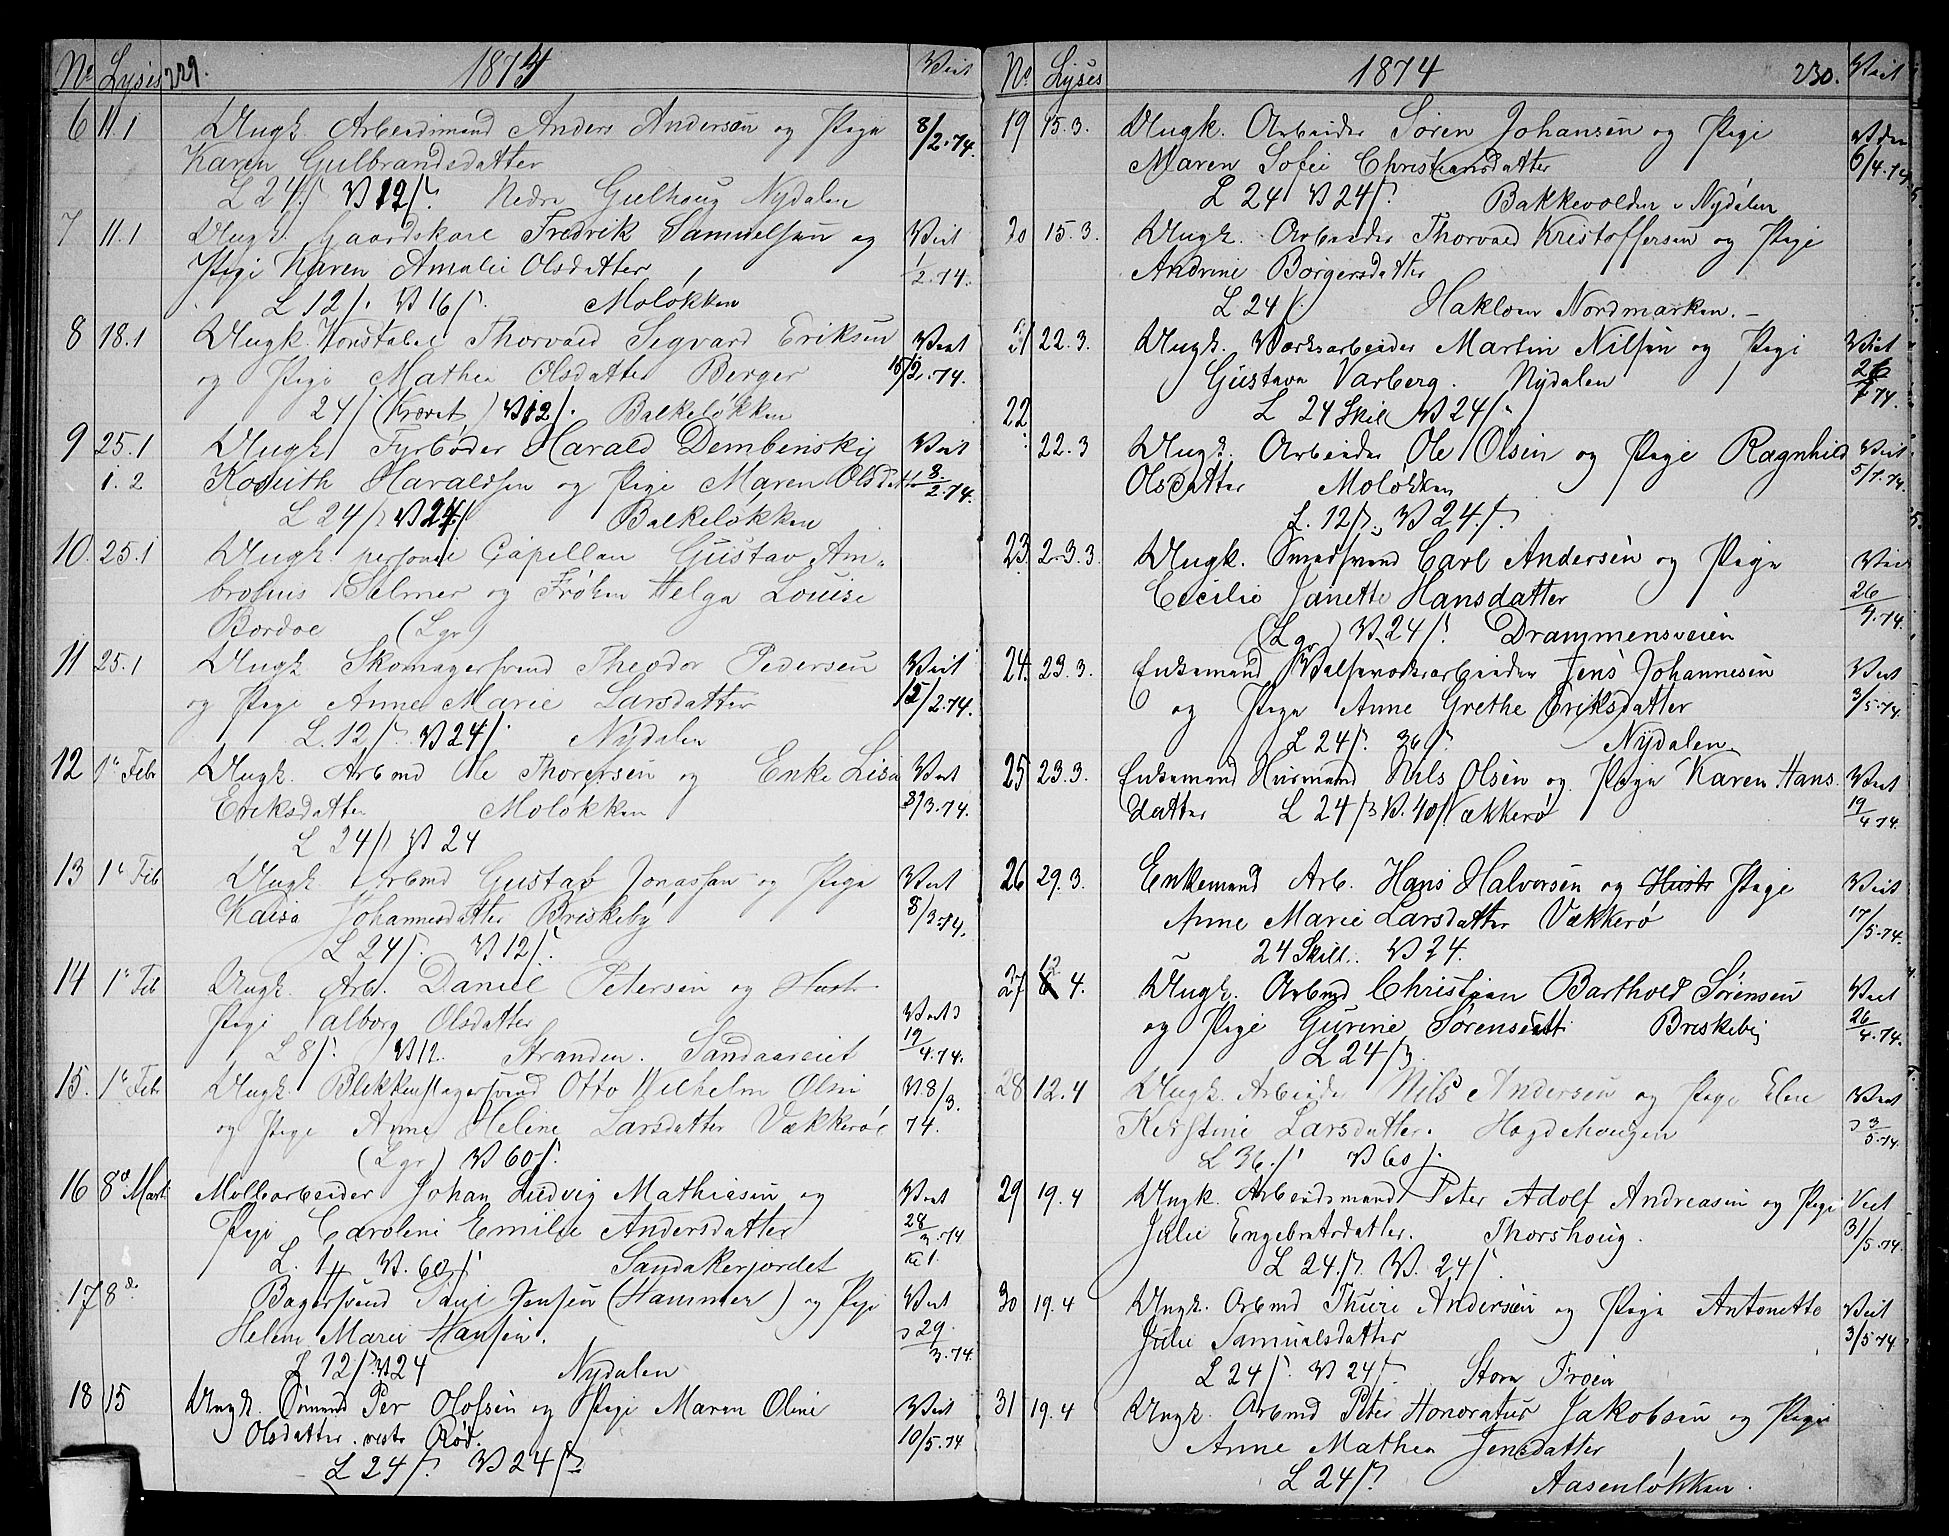 No Lyses 229. 1874 Viet
6 11.1 Ungk. Arbeidsmand Anders Andersen og Pige 8/2.74.
Karen Gulbrandsdatter
L 24/. V 12/. Nedre Gulhaug Nydalen
7 11.1 Ungk. Gaardskarl Fredrik Samuelsen og Viet
Pige Karen Amalie Olsdatter 1/2.74.
L 12/. V 16/. Moløkken
8 18.1 Ungk. Konstabel Thorvald Segvard Eriksen Viet
og Pige Mathea Olsdatter Berger 15/2.74.
24/ (Krævet) V 12/. Balkeløkken
9 25.1 Ungk. Fyrbøder Harald Dembenskij Viet
1.2 Kosuth Haraldsen og Pige Maren Olsdatter 8/2.74.
L 24/ V 24/ Balkeløkken
10. 25.1 Ungk. personel Capellan Gustav Am-
brosius Selmer og Frøken Helga Louise
Bordoe (Lgr)
11 25.1 Ungk Skomagersvend Theodor Pedersen Viet
og Pige Anne Marie Larsdatter 15/2.74.
L. 12/. V 24/. Nydalen
12 1e Febr Ungk. Arbmd Ole Thoresen og Enke Lisa Viet
Eriksdatter Moløkken 8/3.74.
L 24/ V 24
13 1e Feb Ungk Arbmd Gustav Jonassen og Pige Viet
Kaisa Johannesdatter Briskeby 8/3.74.
L 24/. V 12/.
14 1e Feb Ungk. Arb. Daniel Petersen og Hustr
Pige Valborg Olsdatter Viet
L 8/. V 12. Stranden. Sandakereiet 12/4.74.
15. 1e Feb Ungk. Blikkenslagersvend Otto Wilhelm Olsen V. 8/3.
og Pige Anne Helene Larsdatter Vækkerøe 74.
(Lgr) V 60/.
16 8de Mart Møllearbeider Johan Ludvig Mathiesen og Viet
Pige Caroline Emilie Andersdatter 28/3.74
L. 14 V. 60/ Sandakerjordet kl 1.
17 8de Bagersvend Paul Jensen (Hammer) og Pige Viet
Helene Marie Hansen. 29/3.74
L 12/. V 24 Nydalen
18 15 Ungk. Sømand Per Olofsen og Pige Maren Oline Viet
Olsdatter. vestr Rød. 10/5.74
L 24/. V 24/.
No. Lyses 1874 230. Viet
19 15.3. Ungk. Arbeider Søren Johansen og Pige
Maren Sofie Christiansdatter 6/4.74.
L 24 V 24/. Bakkevolden i Nydalen
20 15.3. Ungk. Arbeider Thorvald Kristoffersen og Pige
Andrine Borgersdatter
L 24/. Hakloen Nordmarken.
21 22.3. Ungk. Værksarbeider Martin Nilsen og Pige Viet
Gustava Varberg. Nydalen 26/4.74.
22 L 24 Skil V 24/.
22.3 Ungk. Arbeider Ole Olsen og Pige Ragnhild Viet
Olsdatter Moløkken 5/7.74.
L. 12/. V 24/.
23. 23.3 Ungk. Smedsvend Carl Andersen og Pige Viet
Cecilie Janette Hansdatter 26/4.74.
(Lgr) V 24/. Drammensveien
24. 23.3. Enkemand Valseværksarbeider Jens Johannesen Viet
og Pige Anne Grethe Eriksdatter 3/5.74.
L 24/. 36/. Nydalen.
25 23.3. Enkemand Husmand Nils Olsen og Pige Karen Hans- Viet
datter L 24/ V. 40/ Vækkerø 19/4.74.
26 29.3. Enkemand Arb. Hans Halvorsen og Hustr Pige Viet
Anne Marie Larsdatter Vækkerø 17/5.74.
24 Skill. V 24.
27 12 4. Ungk. Arbmd Christian Barthold Sørensen Viet
og Pige Gurine Sørensdatt Briskebij 26/4.74.
L 24/.
28 12.4 Ungk. Arbeider Nils Andersen og Pige Elene Viet
Kirstine Larsdatter. Hagdehougen 3/5.74.
L 36./ V 60/.
29 19.4 Ungk. Arbeidsmand Peter Adolf Andreasen og Pige Viet
Julie Engebretsdatter. Thorshoug. 31/5.74.
L 24/. V. 24/.
30 19.4 Ungk. Arbmd Thure Andersen og Pige Antonette Viet
Julie Samuelsdatter 3/5.74
L 24/. V 24/. Store Frøen
31 19.4 Ungk. Arbmd Peter Honoratus Jakobsen og Pige
Anne Mathea Jensdatter
L 24/. Aasenløkken.